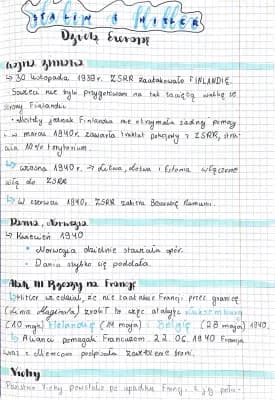 STALIN i HITLER
Dzielą Europę
Wojna zimowa
↳ 30 listopada 1939r. ZSRR zaatakowało FINLANDIĘ.
Sowieci nie byli przygotowani na tak zaciętą walkę ze
strony Finlandii
• Niestety jednak Finlandia nie otrzymała żadnej pomocy
i w marcu 1940r. zawarła traktat pokojowy z ZSRR,
10% terytorium.
↳ wiosna 1940r. → Litwa, Łotwa i Estonia włączone
są do ZSRR
↳ W czerwcu 1940r. ZSRR zabiera Besarabię Rumunii.
Dania, Norwegia
Kwiecień 1940
• Norwegia dzielnie stawiała opór.
• Dania szybko się poddała.
Atak III Rzeszy na Francję
↳ Hitler wiedział, że nie zaatakuje Francji przez granicę
(Linia Maginota) zrobił to więc atakując Luksemburg
(10 maj) Holandię (14 maja) Belgię (28 maja) 1940.
↳ Alianci pomagali Francuzom. 22.06.1940 Francja
wraz z Niemcami podpisała zawieszenie broni.
Vichy
Państwo Vichy powstało po upadku Francji, z jej